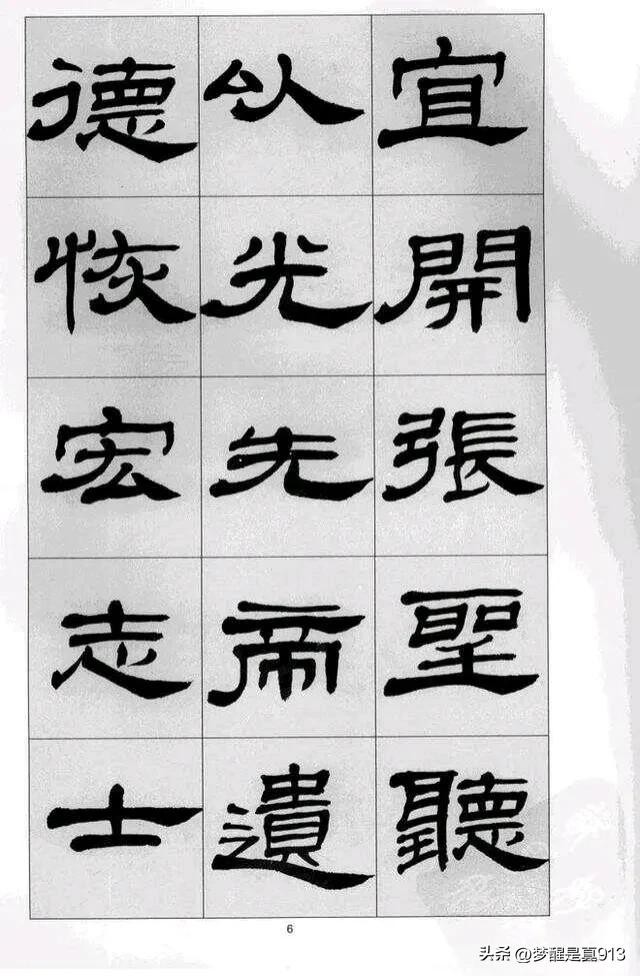 宜開張聖聽
以光先帝遺
德恢宏志士
6
头条 @梦醒是真913